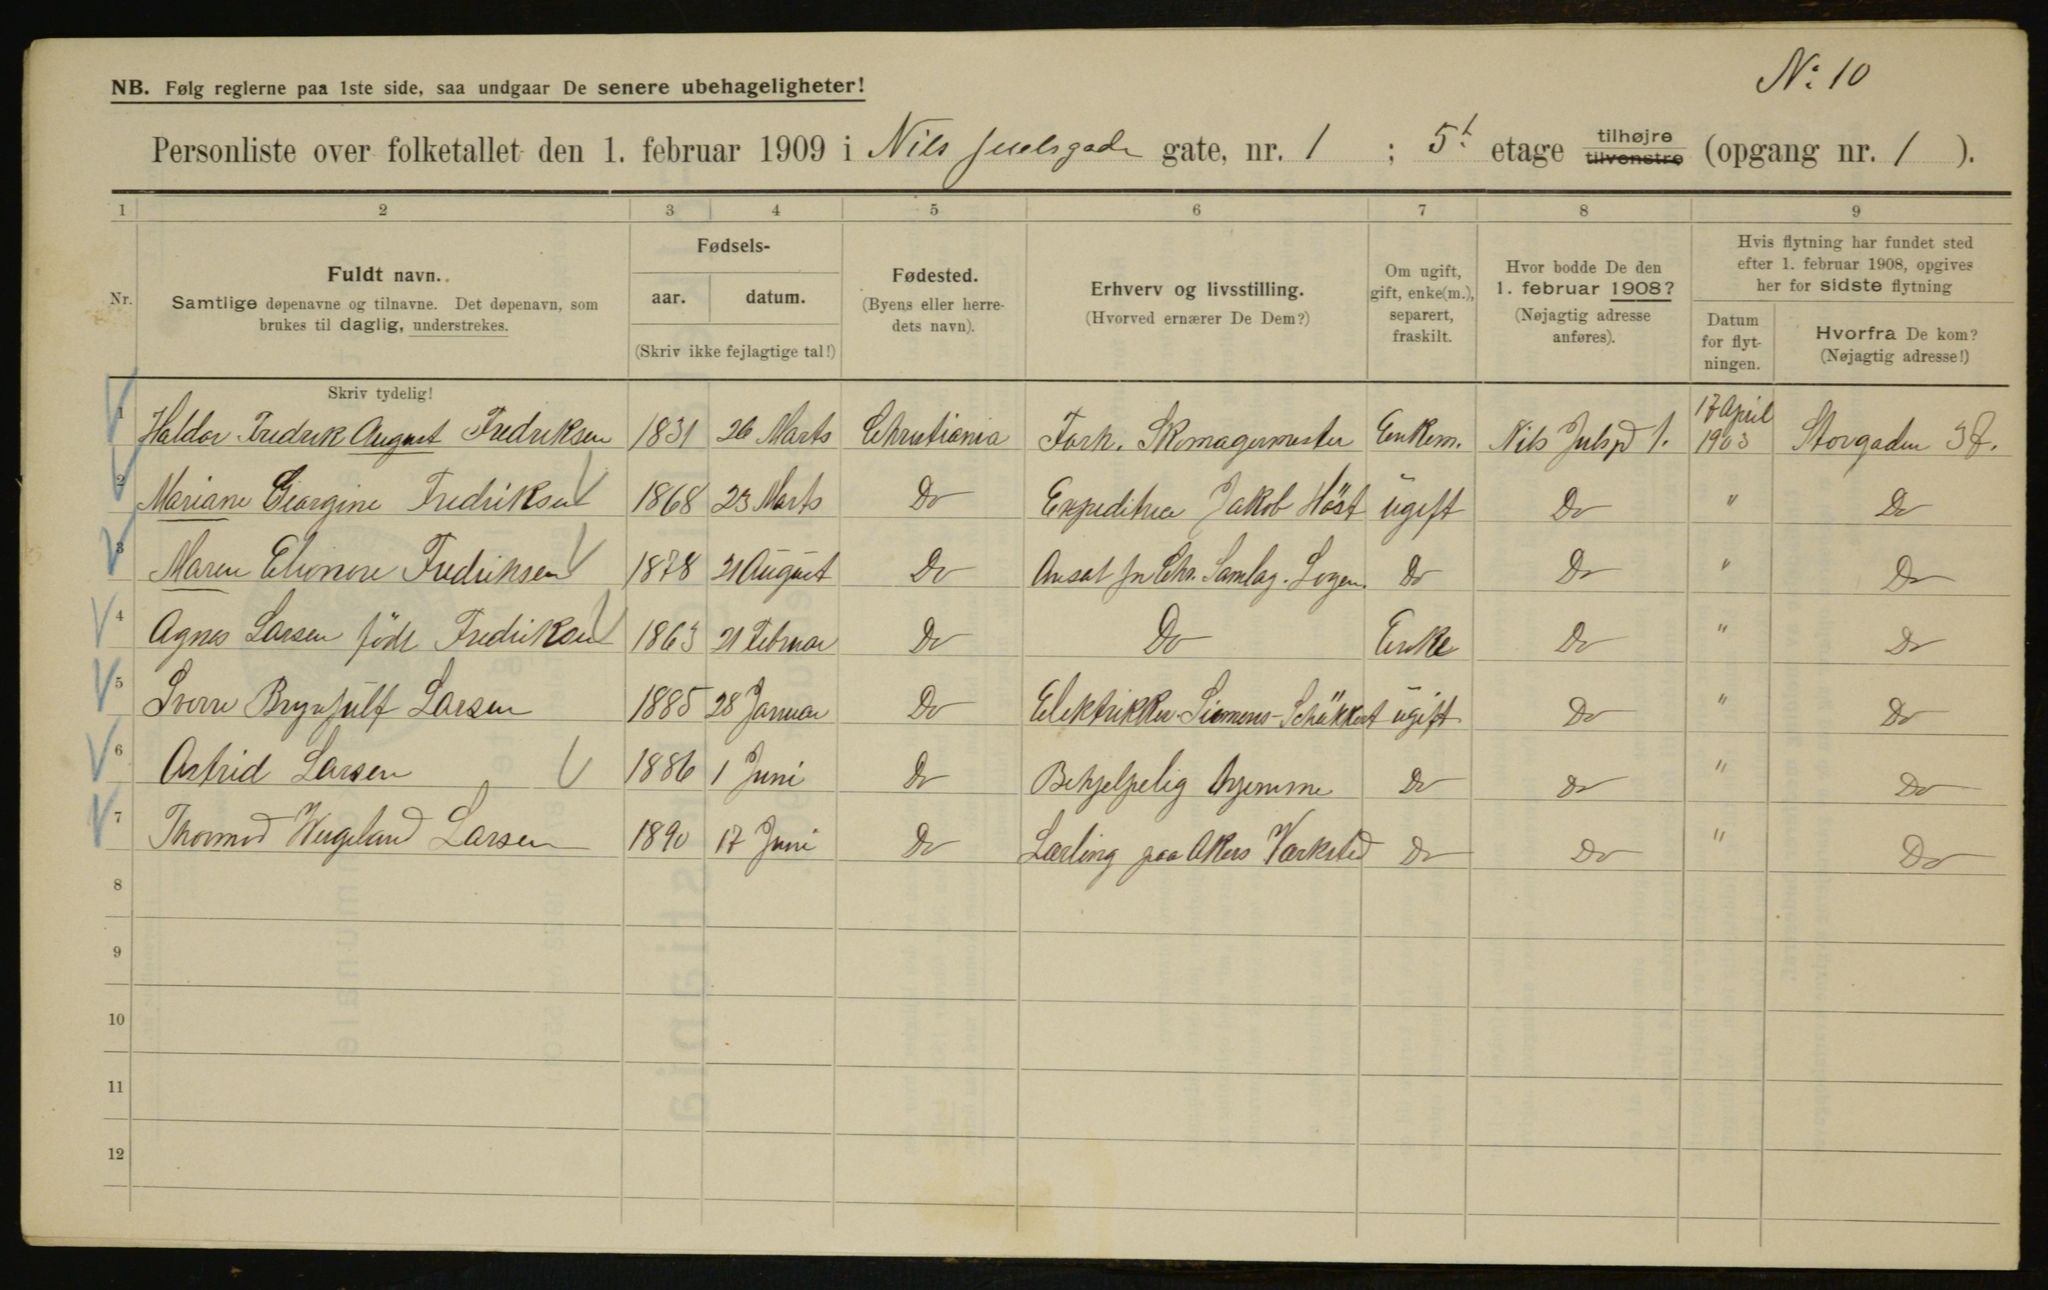 N: 10
NB. Følg reglerne paa 1ste side, saa undgaar De senere ubehageligheter!
Personliste over folketallet den 1. februar 1909 i Nils Juelsgade gate, nr. 1 ; 5t etage tilhøjre tilvenstre (opgang nr. 1 ).
1 2 3 4 5 6 7 8 9
Nr. Fuldt navn. Samtlige døpenavne og tilnavne. Det døpenavn, som brukes til daglig, understrekes. Skriv tydelig!
Fødsels- aar. datum. (Skriv ikke fejlagtige tal!)
Fødested. (Byens eller herredets navn).
Erhverv og livsstilling. (Hvorved ernærer De Dem?)
Om ugift, gift, enke(m.), separert, fraskilt.
Hvor bodde De den 1. februar 1908? (Nøjagtig adresse anføres).
Hvis flytning har fundet sted efter 1. februar 1908, opgives her for sidste flytning
Datum for flytningen. Hvorfra De kom? (Nøjagtig adresse!)
1 Haldor Fredrik August Fredriksen 1831 26 Marts Christiania Fork. Skomagermester Enkem. Nils Julsgd 1. 17 April 1903 Storgaden
2 Mariane Georgine Fredriksen 1868 23 Marts Do Expeditrice Jakob Höst ugift Do " Do
3 Maren Elionore Fredriksen 1878 21 August Do Ansat Chr. Samlag. Logen. Do Do " Do
4 Agnes Larsen födt Fredriksen 1863 21 Februar Do Do Enke Do " Do
5 Sverre Brynjulf Larsen 1885 28 Januar Do Elektriker Siemens-Schükkert ugift Do " Do
6 Astrid Larsen 1886 1 Juni Do Behjelpelig hjemme Do Do " Do
7 Thormod Wergeland Larsen 1890 17 Juni Do Lærling paa Akers Værksted Do Do " Do
8
9
10
11
12